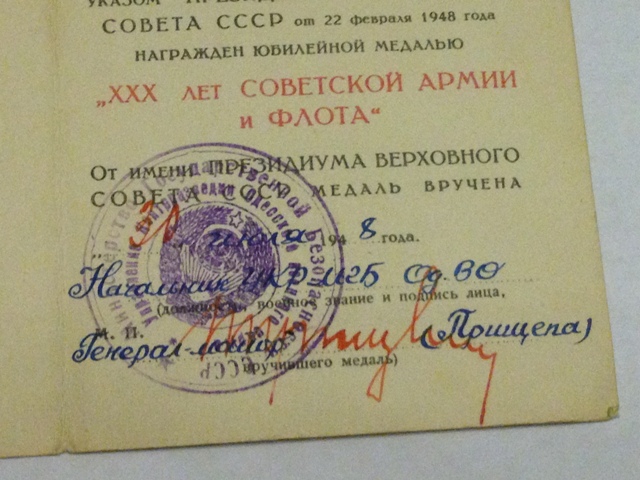 УКАЗОМ
СОВЕТА СССР от 22 февраля 1948 года
НАГРАЖДЕН ЮБИЛЕЙНОЙ МЕДАЛЬЮ
„XXX ЛЕТ СОВЕТСКОЙ АРМИИ
И ФЛОТА“
От имени ПРЕЗИДИУМА ВЕРХОВНОГО
СОВЕТА СССР МЕДАЛЬ ВРУЧЕНА
июля 1948 года.
Начальник УКР МГБ Од.ВО
(должность, военное звание и подпись лица,
М. П.
Генерал-майор (Прищепа)
вручившего медаль)
Министерство Государственной Безопасности
СССР
Управление Контрразведки Одесского Военного